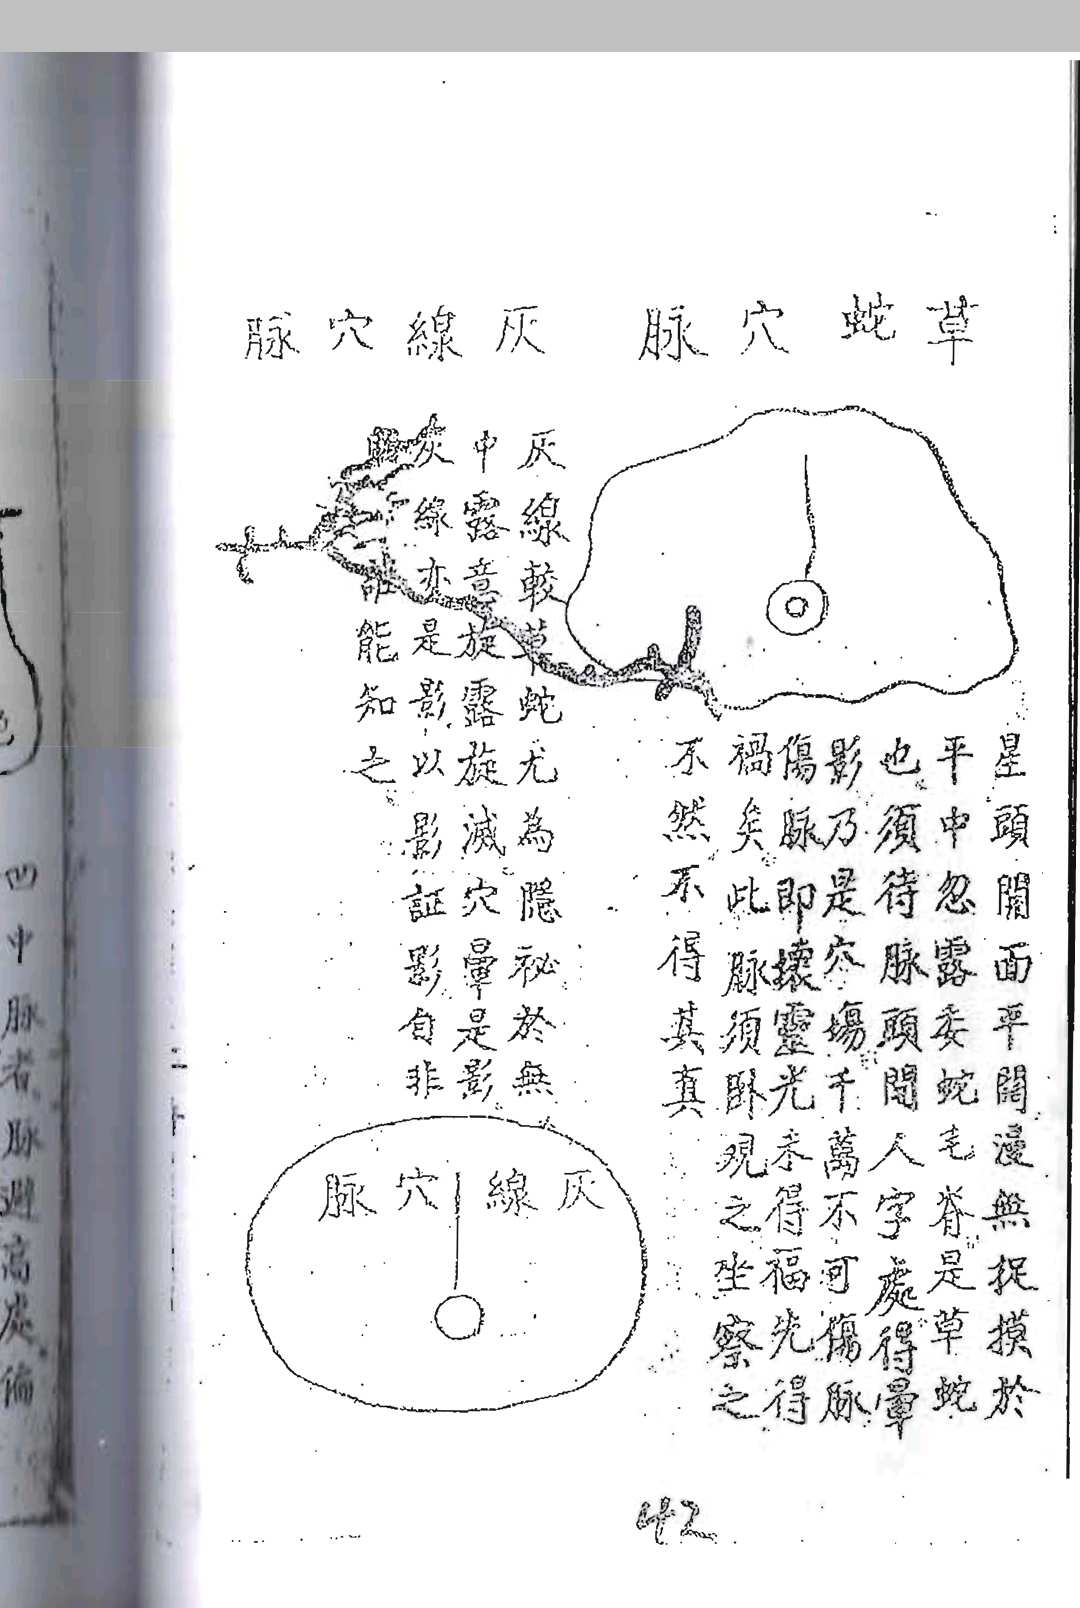 草蛇穴脉
星頭開面平闊漫無捉摸於
平中忽露委蛇毛脊是草蛇
也須待脉頭開人字處得暈
影乃是穴場千萬不可傷脉
傷脉即壞靈光未得福先得
禍矣此脉須卧观之坐察之
不然不得其真
灰線穴脉
灰線較草蛇尤為隱祕於無
中露意旋露旋滅穴暈是影
灰線亦是影以影証影自非
誰能知之
灰線穴脉
凹中脉者脉避高處偏
42